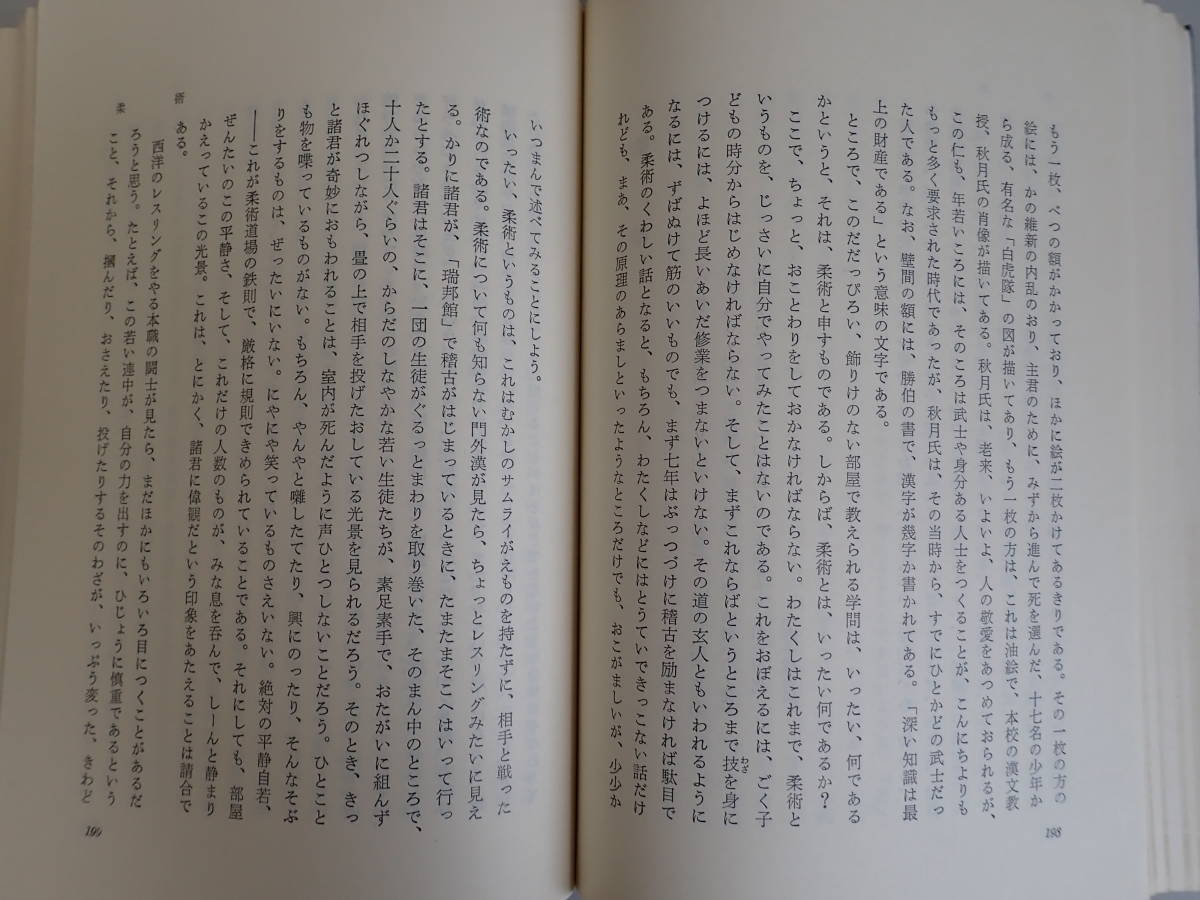 もう一枚、べつの額がかかっており、ほかに絵が二枚かけてあるきりである。その一枚の方の
絵には、かの維新の内乱のおり、主君のために、みずから進んで死を選んだ、十七名の少年か
ら成る、有名な「白虎隊」の図が描いてあり、もう一枚の方は、これは油絵で、本校の漢文教
授、秋月氏の肖像が描いてある。秋月氏は、老来、いよいよ、人の敬愛をあつめておられるが、
この仁も、年若いころには、そのころは武士や身分ある人士をつくることが、こんにちよりも
もっと多く要求された時代であったが、秋月氏は、その当時から、すでにひとかどの武士だっ
た人である。なお、壁間の額には、勝伯の書で、漢字が幾字か書かれてある。「深い知識は最
上の財産である」という意味の文字である。
ところで、このだだっぴろい、飾りけのない部屋で教えられる学問は、いったい、何である
かというと、それは、柔術と申すものである。しからば、柔術とは、いったい何であるか？
ここで、ちょっと、おことわりをしておかなければならない。わたくしはこれまで、柔術と
いうものを、じっさいに自分でやってみたことはないのである。これをおぼえるには、ごく子
どもの時分からはじめなければならない。そして、まずこれならばというところまで技を身に
わざ
つけるには、よほど長いあいだ修業をつまないといけない。その道の玄人ともいわれるように
なるには、ずばぬけて筋のいいものでも、まず七年はぶっつづけに稽古を励まなければ駄目で
ある。柔術のくわしい話となると、もちろん、わたくしなどにはとうていできっこない話だけ
れども、まあ、その原理のあらましといったようなところだけでも、おこがましいが、少少か
198
いつまんで述べてみることにしよう。
いったい、柔術というものは、これはむかしのサムライがえものを持たずに、相手と戦った
術なのである。柔術について何も知らない門外漢が見たら、ちょっとレスリングみたいに見え
る。かりに諸君が、「瑞邦館」で稽古がはじまっているときに、たまたまそこへはいって行っ
たとする。諸君はそこに、一団の生徒がぐるっとまわりを取り巻いた、そのまん中のところで、
十人か二十人ぐらいの、からだのしなやかな若い生徒たちが、素足素手で、おたがいに組んず
ほぐれつしながら、畳の上で相手を投げたおしている光景を見られるだろう。そのとき、きっ
と諸君が奇妙におもわれることは、室内が死んだように声ひとつしないことだろう。ひとこと
も物を喋っているものがない。もちろん、やんやと囃したてたり、興にのったり、そんなそぶ
りをするものは、ぜったいにいない。にやにや笑っているものさえいない。絶対の平静自若、
――これが柔術道場の鉄則で、厳格に規則できめられていることである。それにしても、部屋
ぜんたいのこの平静さ、そして、これだけの人数のものが、みな息を吞んで、しーんと静まり
かえっているこの光景。これは、とにかく、諸君に偉観だという印象をあたえることは請合で
ある。
西洋のレスリングをやる本職の闘士が見たら、まだほかにもいろいろ目につくことがあるだ
ろうと思う。たとえば、この若い連中が、自分の力を出すのに、ひじょうに慎重であるという
こと、それから、摑んだり、おさえたり、投げたりするそのわざが、いっぷう変った、きわど
柔術
199